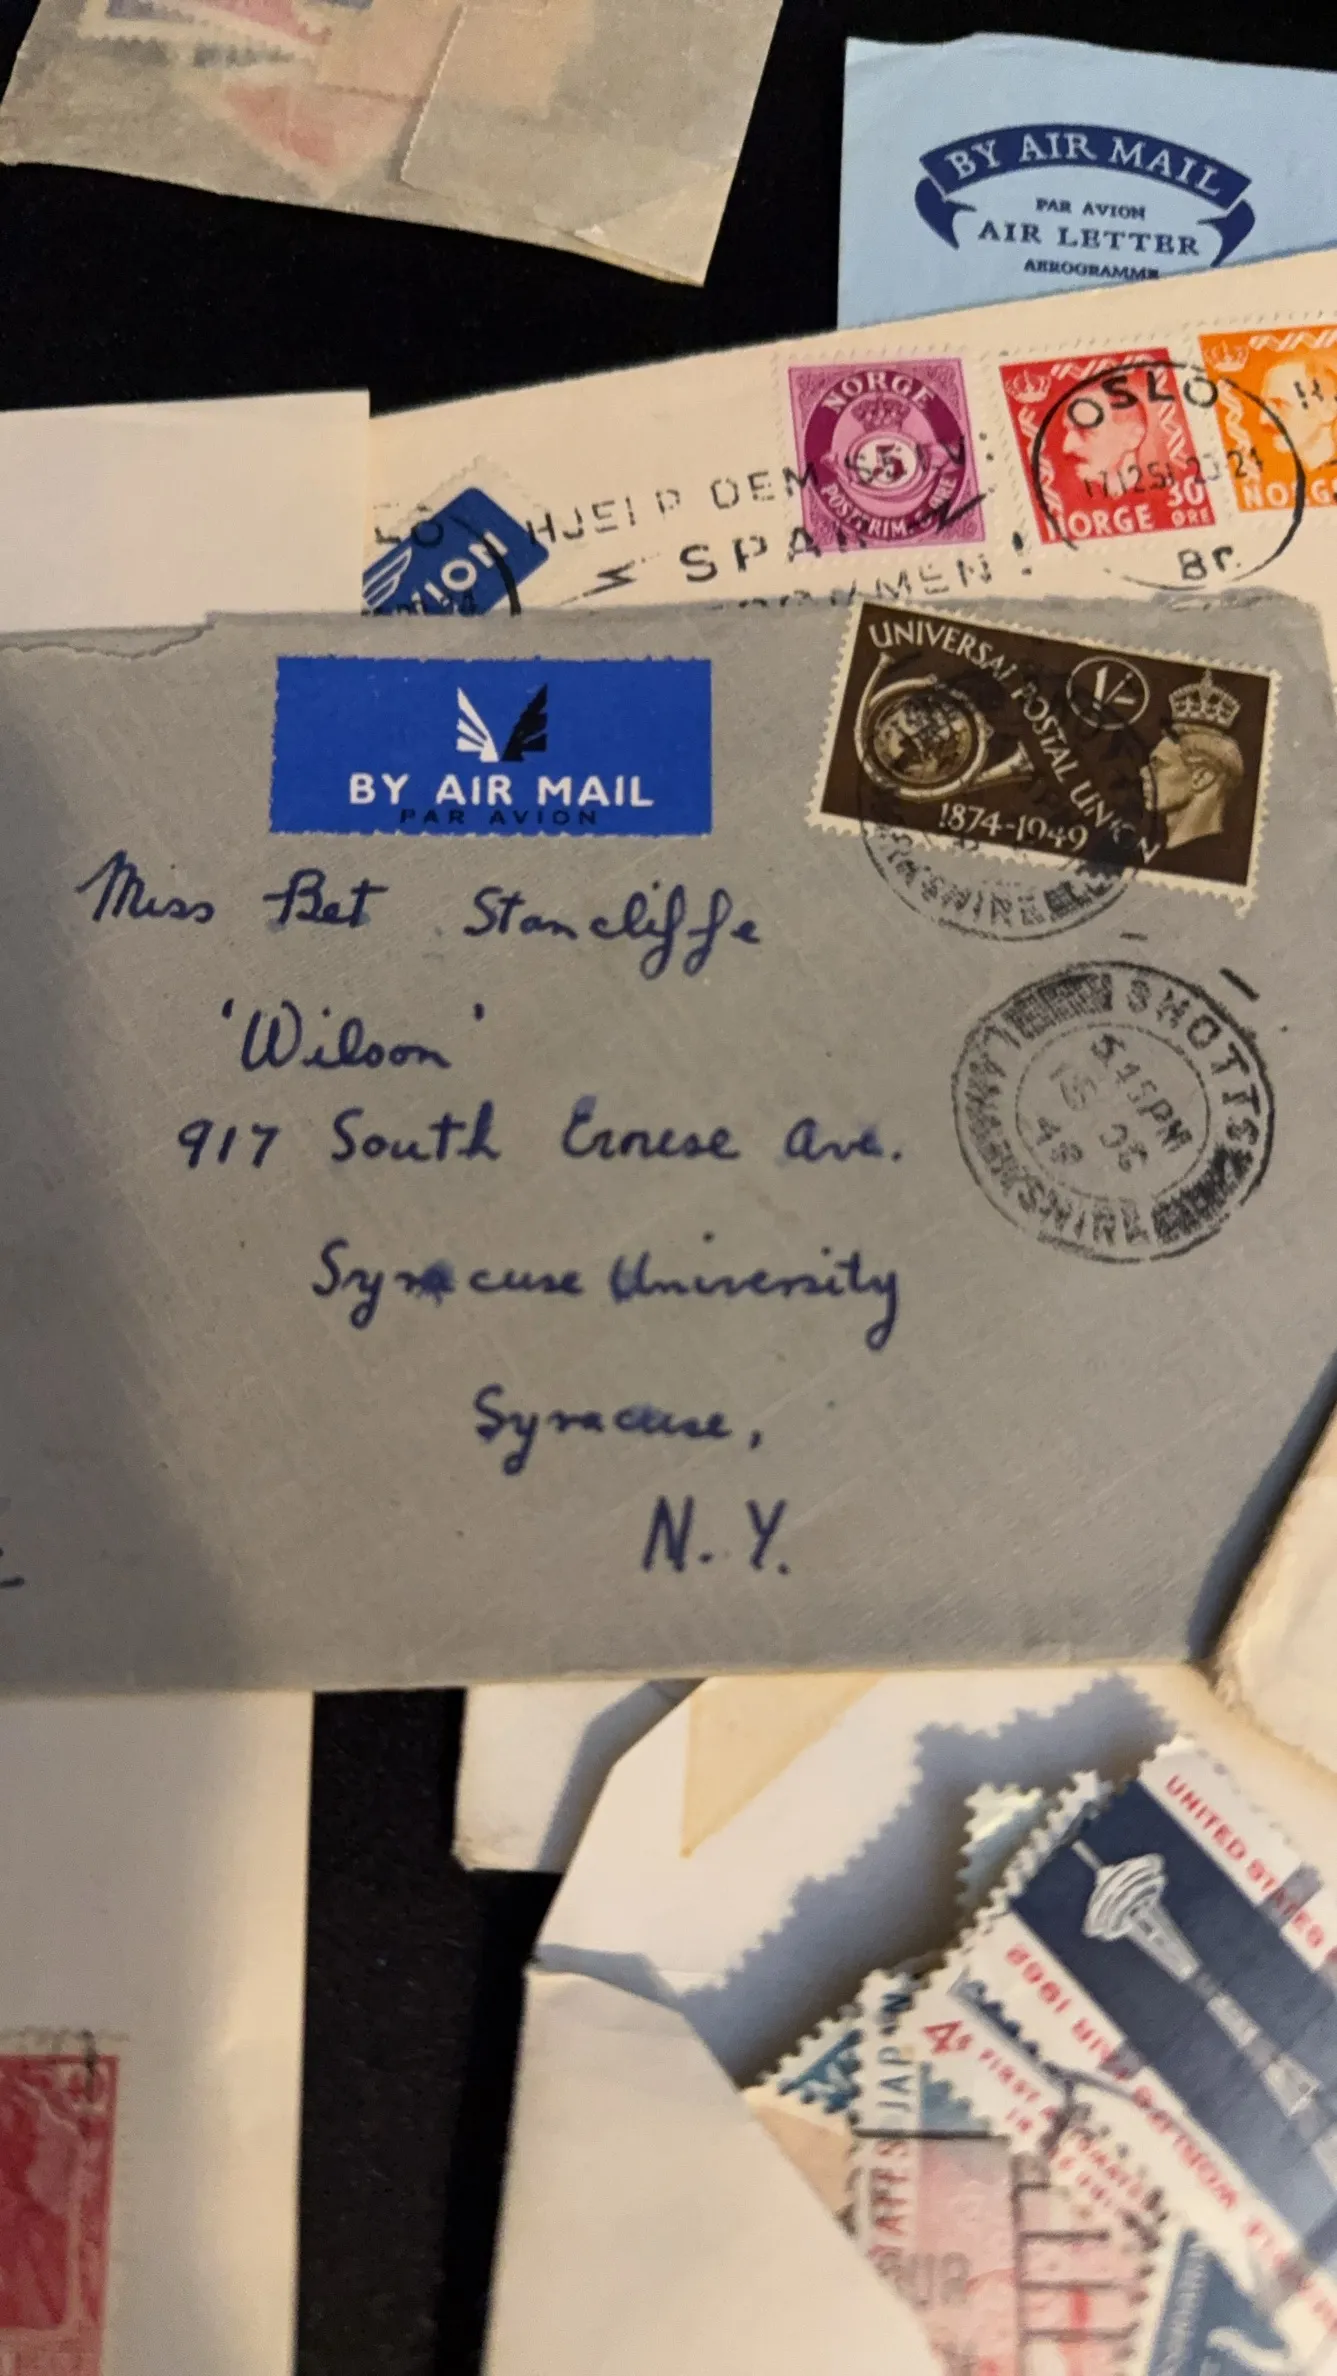 BY AIR MAIL
PAR AVION
AIR LETTER
AEROGRAMME
NORGE
5
POSTFRIM.
HJELP DEM SELV!
SPAR
RAMMEN!
NORGE 30
ØRE
OSLO
17.12.51
Br.
NORG
ION
UNIVERSAL POSTAL UNION
1/-
1874-1949
BY AIR MAIL
PAR AVION
Miss Bet Stancliffe
'Wilson'
917 South Crouse Ave.
Syracuse University
Syracuse,
N. Y.
SHOTTS
LANARKSHIRE
5.45PM
49
UNITED STATES
SEATTLE WORLD'S FAIR 1962
4¢ FIRST
JAPAN